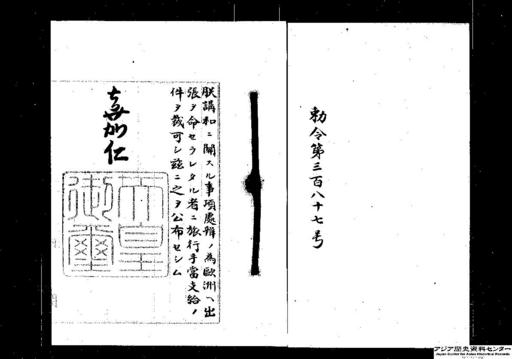 勅令第三百八十七号
朕講和ニ関スル事項処弁ノ為欧洲ヘ出
張ヲ命セラレタル者ニ旅行手当支給ノ
件ヲ裁可シ茲ニ之ヲ公布セシム
嘉仁
天皇
御璽
アジア歴史資料センター
Japan Center for Asian Historical Records